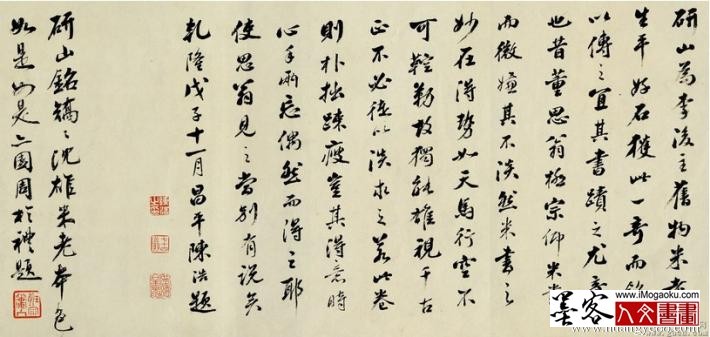 研山為李後主舊物米老
生平好石獲此一奇而銘
以傳之宜其書蹟之尤奇
也昔董思翁極宗仰米書
而微嫌其不淡然米書之
妙在得勢如天馬行空不
可鞚勒故獨能雄視千古
正不必徒以淡求之若此卷
則朴拙疎瘦豈其得意時
心手兩忘偶然而得之耶
使思翁見之當別有說矣
乾隆戊子十一月昌平陳浩題
研山銘沈雄米老本色
如是如是周於禮題
墨客
www.iMogaoku.com
人文書畫